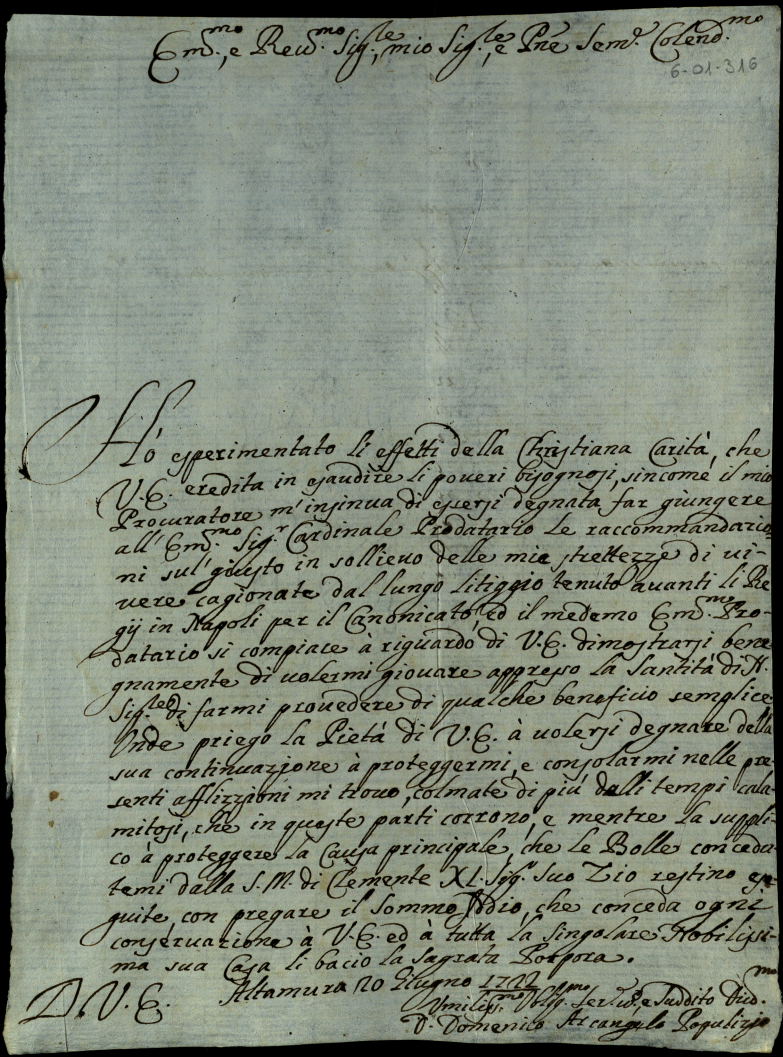 Em.mo, e Reu.mo Sig.re, mio Sig.re, e Pne Sem.e Colend.mo
6-01-316
Hó esperimentato li effetti della Christiana Carità, che
V.E. eredita in esaudire li poueri bisognosi, sincome il mio
Procuratore m'insinua di essersi degnata far giungere
all'Em.mo Sig.r Cardinale Prodatario le raccommandazio-
ni sul giusto in sollieuo delle mie strettezze di ui-
uere cagionate dal lungo litiggio tenuto auanti li Re
gij in Napoli per il Canonicato, ed il medemo Em.mo Pro-
datario si compiace à riguardo di V.E. dimostrarsi beni
gnamente di uolermi giouare appresso la Santità di N.
Sig.re di farmi prouedere di qualche beneficio semplice
Onde priego la Pietà di V.E. à uolersi degnare della
sua continuazione à proteggermi, e consolarmi nelle pre-
senti afflizzioni mi trouo, colmate di più dalli tempi cala-
mitosi, che in queste parti corrono, e mentre la suppli-
co à proteggere la Causa principale, che le Bolle concedu-
temi dalla S.M. di Clemente XI. Sig.r suo Zio restino ese-
guite, con pregare il sommo Iddio, che conceda ogni
conseruazione à V.E. ed à tutta la singolare Nobilissi-
ma sua Casa li bacio la sagrata Porpora.
D.V.E. Altamura 20 Giugno
Vmiliss.mo Oblig.mo Ser.re, e Suddito Diuo.mo
D. Domenico Arcangelo Popolizio